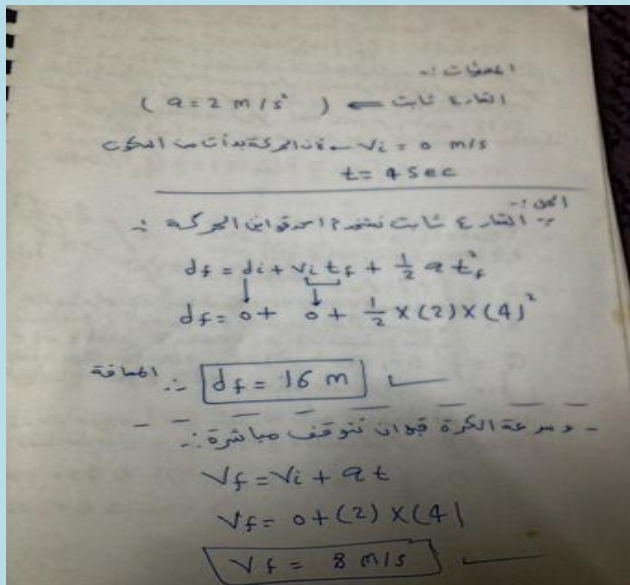 المعطيات :-
التسارع ثابت ⇐ ( a = 2 m/s² )
Vi = 0 m/s ← لأن الحركة بدأت من السكون
t = 4 sec
الحل :-
∵ التسارع ثابت نستخدم احد قوانين الحركة :-
df = di + vi tf + ½ a tf²
df = 0 + 0 + ½ × (2) × (4)²
∴ المسافة df = 16 m
- وسرعة الكرة قبل ان تتوقف مباشرة :-
Vf = Vi + at
Vf = 0 + (2) × (4)
Vf = 8 m/s